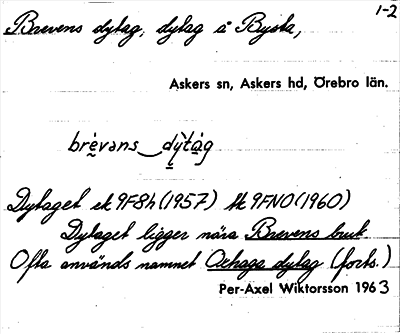 1-2
Brevens dytag, dytag å Bysta,
Askers sn, Askers hd, Örebro län.
brévans dỳtág
Dytaget ek 9F8h (1957) tk 9FNO (1960)
Dytaget ligger nära Brevens bruk
Ofta används namnet Oxhaga dytag (forts.)
Per-Axel Wiktorsson 1963